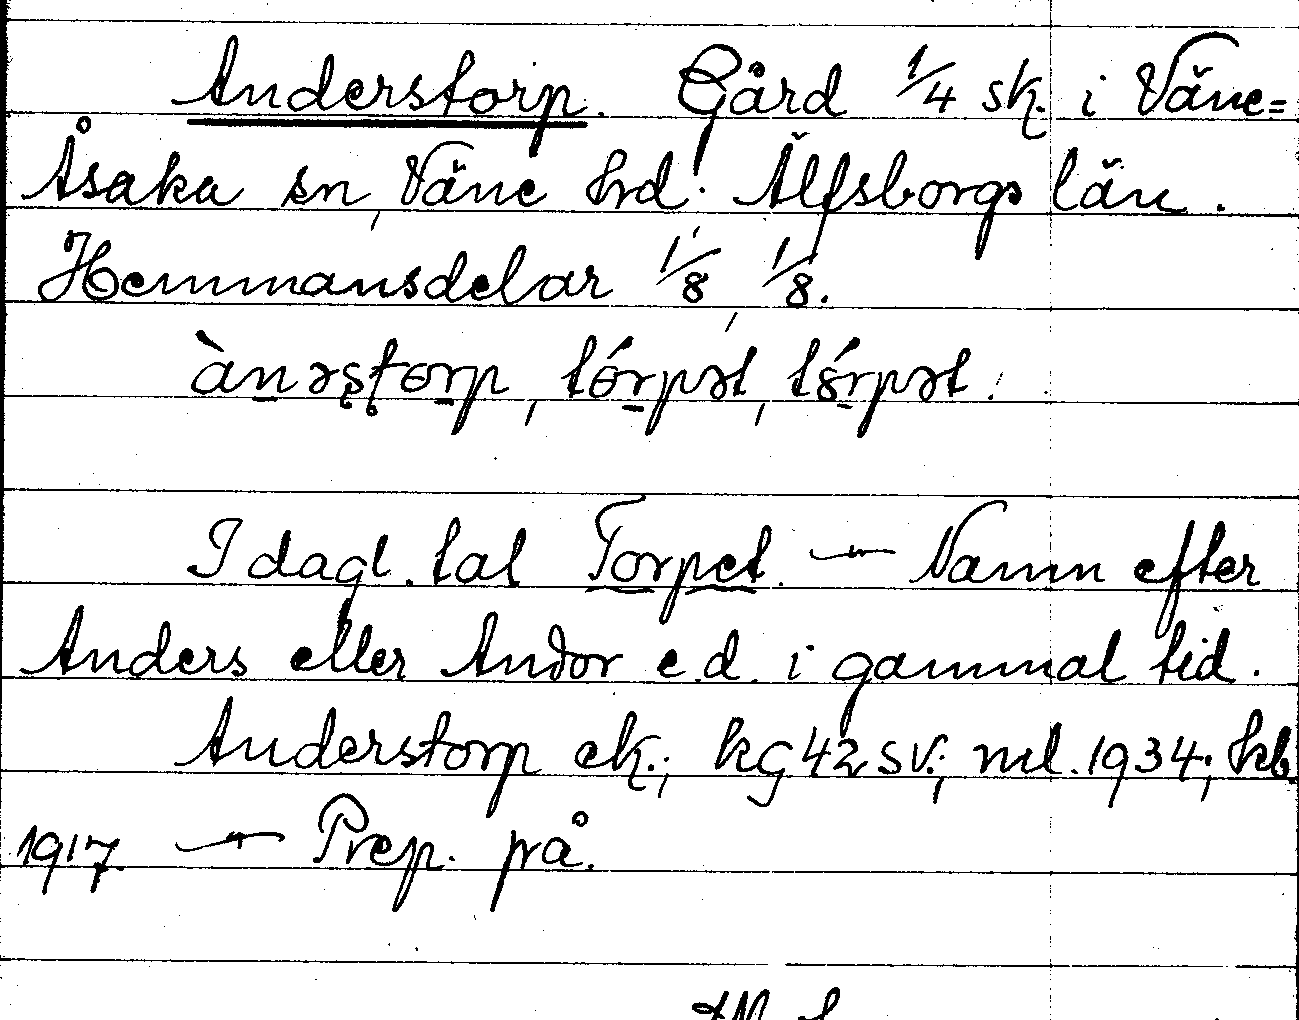 Anderstorp. Gård 1/4 sk. i Väne-
Åsaka sn, Väne hd. Älfsborgs län.
Hemmansdelar 1/8, 1/8.
ànəstorp, tórpət, tórpət.
I dagl. tal Torpet. — Namn efter
Anders eller Andor e.d. i gammal tid.
Anderstorp ek.; kg 42 sv.; ml. 1934; kb.
1917. — Prep. på.